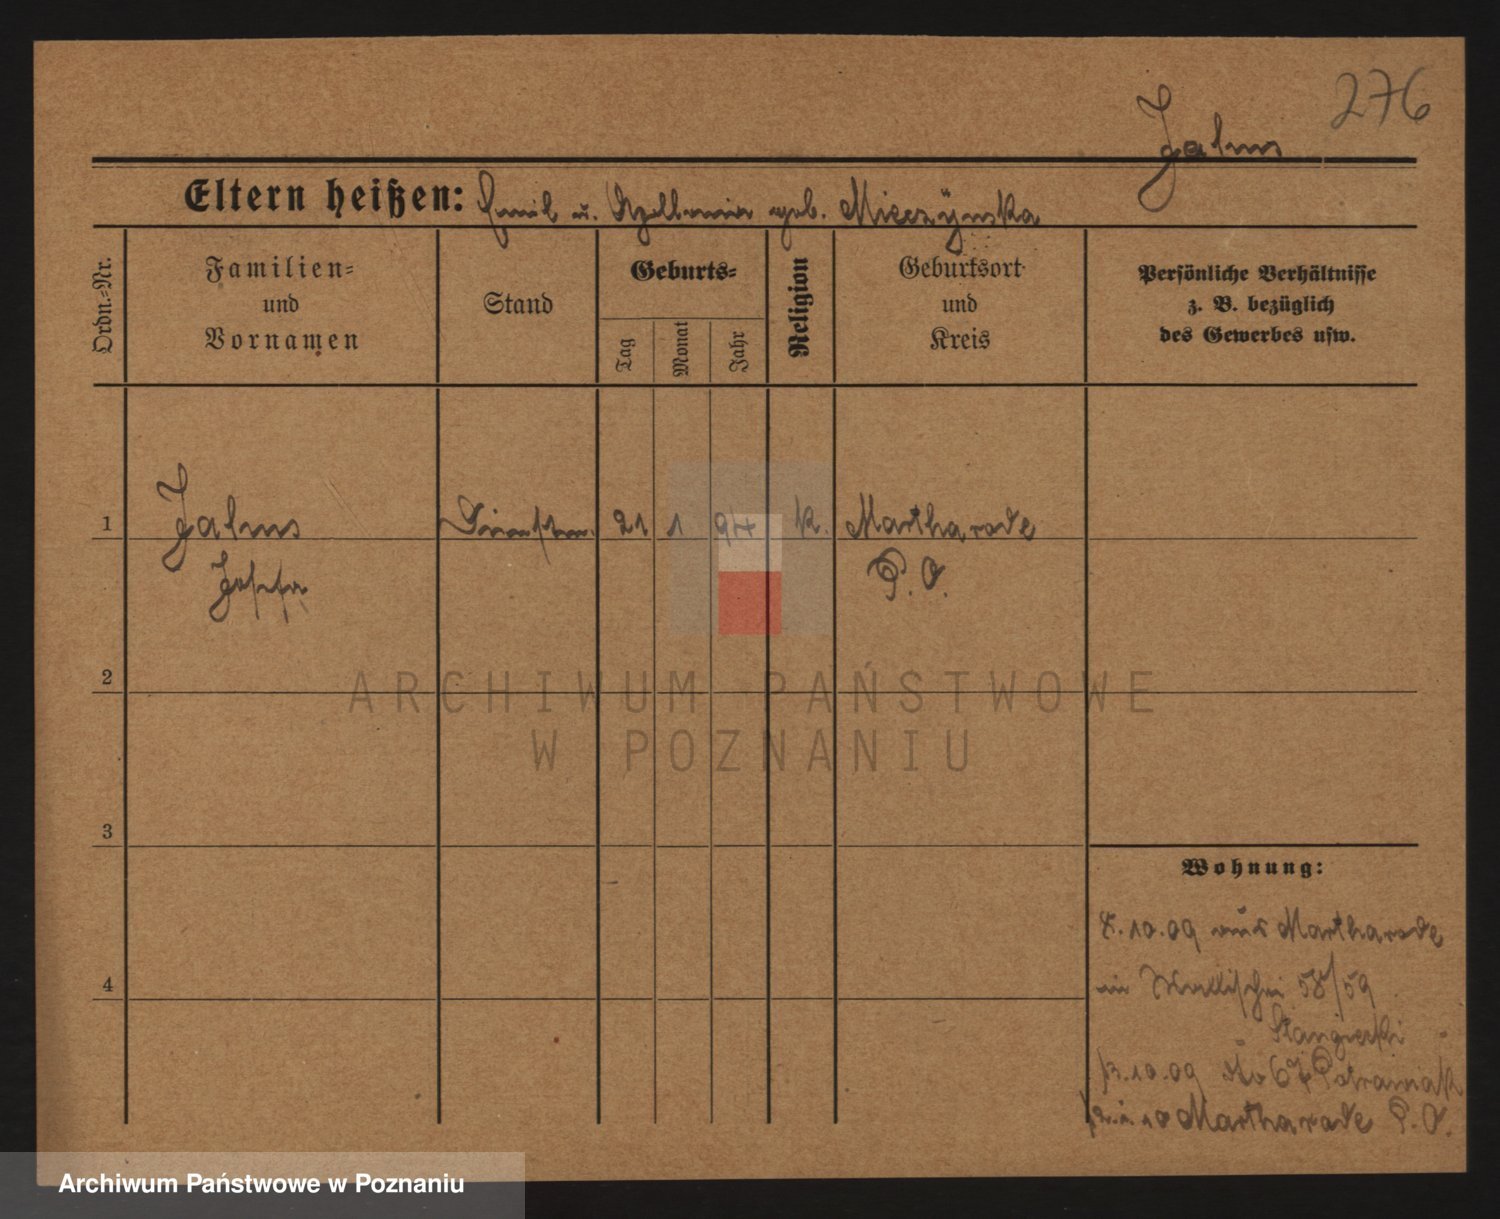 276
Jahns
Eltern heißen: Emil u. geb. Mieczÿnska
Ordn.=Nr.
Familien=
und
Vornamen
Stand
Geburts=
Tag
Monat
Jahr
Religion
Geburtsort
und
Kreis
Persönliche Verhältnisse
z. B. bezüglich
des Gewerbes usw.
1 Jahns 21 1 94 k. Martharode
Josefa P. O.
2
ARCHIWUM PAŃSTWOWE
W POZNANIU
3
Wohnung:
8.10.09 aus Martharode
4
in Wallischei 58/59
10.09 67
10 Martharode P. O.
Archiwum Państwowe w Poznaniu